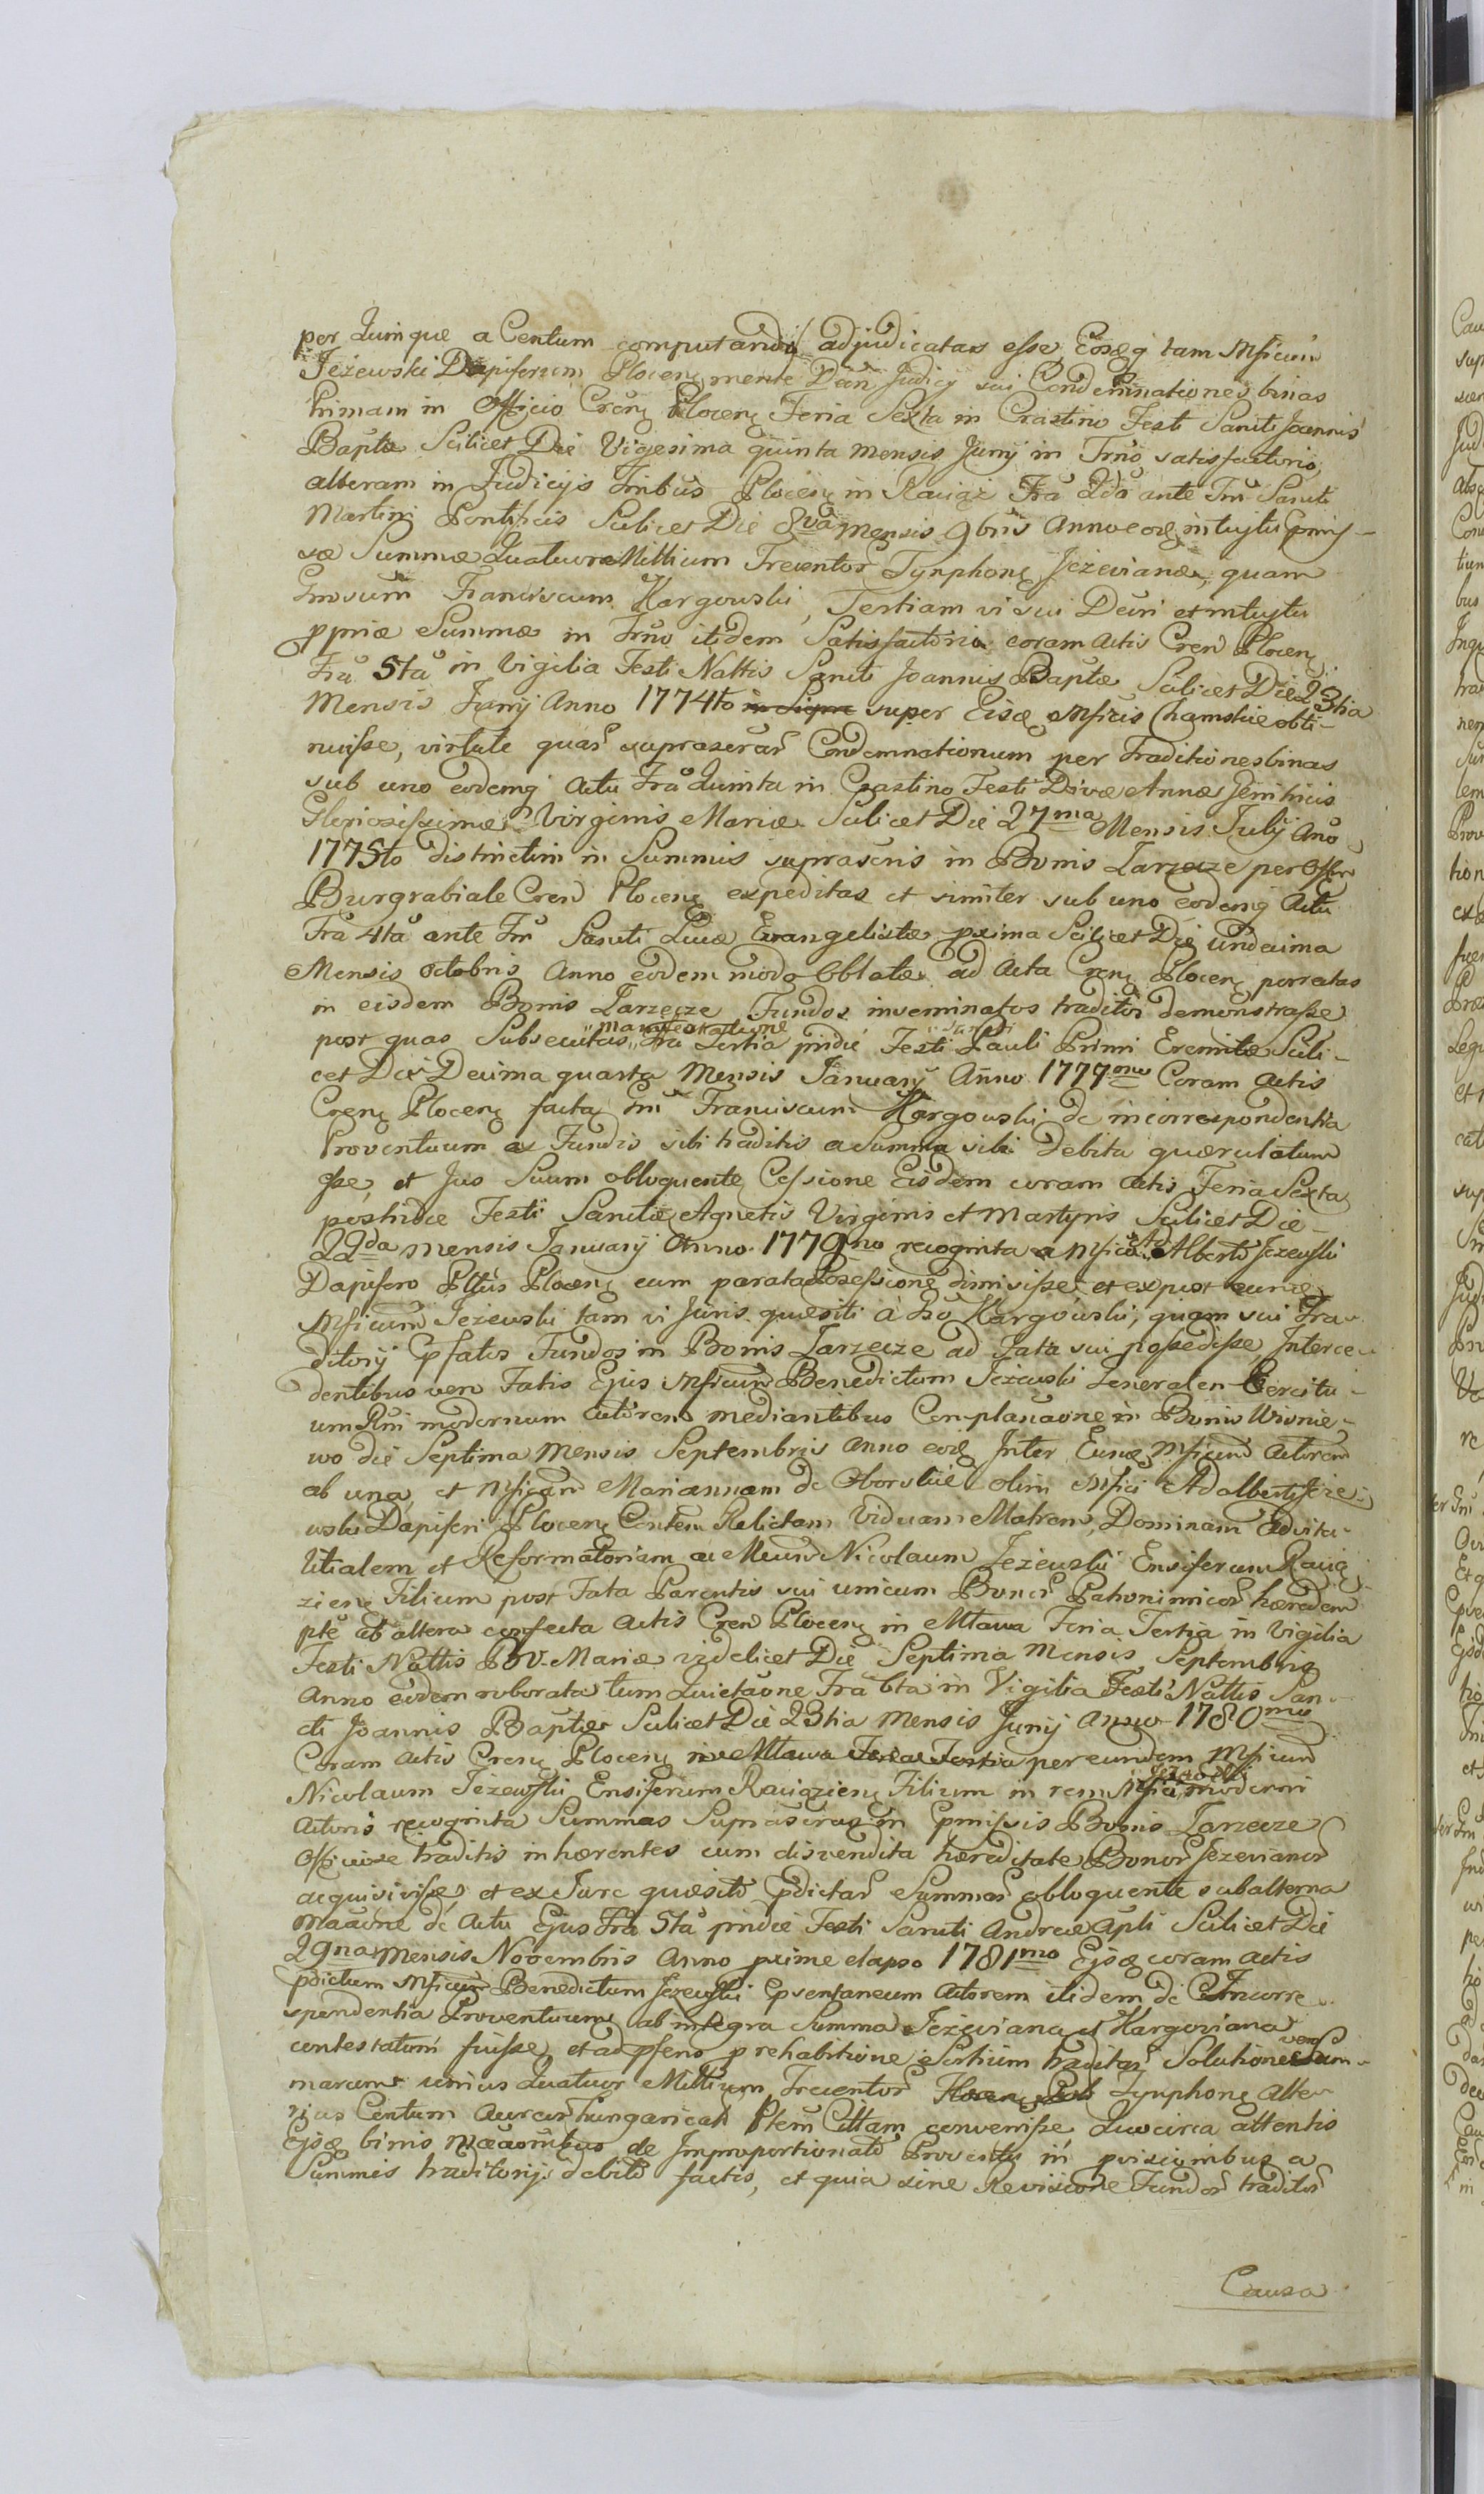 per Quinque a Centum computandis adjudicatas esse, Eosq tam Mficum
Jeżewski Dapiferum Plocen mente Dein Judicij sui Condemnationes binas
Primam in Officio Cren Plocen Feria Sexta in Crastino Festi Sancti Joannis
Baptæ Scilicet Die Vigesima quinta Mensis Junij in Trno satisfactorio,
alteram in Judicijs Trribus Plocen in Raciąż Fra 2da ante Fm Sancti
Martini Pontificis Scilicet Die 8va Mensis 9bris Anno eoq intuitu pmis-
sæ Summæ Quatuor Millium Trecentor Tynphon Jeżevianæ, quam
Gnosum Franciscum Kargowski, Tertiam vi sui Dein et intuitu
ppriæ Summæ in Trno itidem Satisfactorio coram Actis Cren Plocen
Fra 5ta in Vigilia Festi Nattis Sancti Joannis Baptæ Scilicet Die 23tia
Mensis Junij Anno 1774to super Eisq Mficis Chamskie obti-
nuisse, virtute quar suprascrar Condemnationum per traditiones binas
sub uno eodemq Actu Fra Quinta in Crastino Festi Divæ Annæ
Gloriosissimæ Virginis Mariæ Scilicet Die 27ma Mensis Julij Ano
1775to distinctim in Summis suprascris in Bonis Tarzecze per Offm
Burgrabiale Cren Plocen expeditas et similer sub uno eodemq Actu
Fra 4ta ante Fm Sancti Lucæ Evangelistæ pxima Scilicet Die Undecima
Mensis Octobris Anno eodem modo Oblatæ ad Acta Cren Plocen porrectas
in eisdem Bonis Tarzecze Fundos inseminatos traditor demonstrasse
post quas Subsecutas manifestatione Fra Tertia pridie Festi Sancti Pauli Primi Eremitæ Scili-
cet Die Decima quarta Mensis Januarij Anno 1777mo Coram Actis
Cren Plocen facta Gnm Franciscum Kargowski de incorrespondentia
Proventuum ex Fundis sibi traditis a Summa sibi debita quærulatum
esse, et Jus Suum obloquente Cessione Eisdem coram Actis Feria Sexta
postridie Festi Sanctæ Agnetis Virginis et Martyris Scilicet Die
22da Mensis Januarij Anno 1779no recognita a Mfico Ad Alberto Jeżewski
Dapifero Pttus Plocen cum parata Possessione dimisisse et expost eunq
Mficum Jeżewski tam vi Juris quæsiti à Gso Kargowski, quam sui Tra-
ditorij Pfatos Fundos in Bonis Tarzecze ad Fata sui possedisse, Interce-
dentibus vero Fatis Ejus Mficum Benedictum Jeżewski Generalen Exercitu-
um Rni modernum Actorem mediantibus Complanaone in Bonis Wisnie-
wo die Septima Mensis Septembris Anno eoq Inter Eunq Mficum Actorem
ab una, et Mficam Mariannam de Oborskie olim Mfici Adalberti Jeże-
wski Dapiferi Plocen Contem Relictam Viduam Matrem, Dominam advita-
litialem et Reformatoriam ac Mcum Nicolaum Jeżewski Ensiferum Raciąż
zien Filium post Fata Parentis sui unicum Bonor Patronimicor hæredem
pte ab altera confecta Actis Cren Plocen in Mława Feria Tertia in Vigilia
Festi Nattis B.V. Mariæ videlicet Die Septima Mensis Septembris
Anno eodem roborata tum Quietaone Fra 6ta in Vigilia Festi Nattis San-
cti Joannis Baptæ Scilicet Die 23tia Mensis Junij Anno 1780mo
Coram Actis Cren Plocen in Mława Feria Tertia per eundem Mficum
Nicolaum Jeżewski Ensiferum Raciązien Filium in rem Mfici Jeżewski moderni
Actoris recognita Summas Suprascras in Pmissis Bonis Tarzecze
Officiose traditis inhærentes cum disvendita hæreditate Bonor Jeżevianor
acquisivisse, et ex Jure quæsito Pdictar Summar obloquente subalterna
Maaone de Actu Ejus Fra 5ta pridie Festi Sancti Andreæ Apli Scilicet Die
29na Mensis Novembris Anno pxime elapso 1781mo Ejsq coram Actis
pdictum Mficum Benedictum Jeżewski Psentaneum Actorem itidem de Incorre-
spondentia Proventuum ab integra Summa Jeżeviana et Kargoviana
contestatum fuisse, et ad psens p rehabitione Sortium traditar Solutione vero Sum-
marum unius Quatuor Millium Trecentor Tynphon Alte-
rius Centum Aureor hungaricał Ptem Cittam convenisse Quocirca attentis
Ejsq binis Maaonibus de Improportionato Proventu in pvisionibus a
Summis traditorijs debito factis, et quia sine Revisione Fundor traditor
Causa